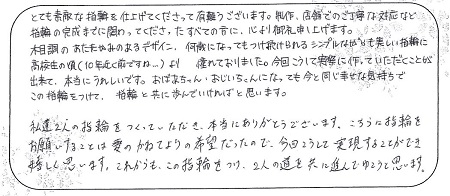 とても素敵な指輪を仕上げてくださって有難うございます。制作、店舗でのご丁寧な対応など
指輪の完成までに関わってくださったすべての方に、心より御礼申し上げます。
木目調のあたたかみのあるデザイン、何歳になってもつけ続けられるシンプルながらも美しい指輪に
高校生の頃(10年近く前ですね…)より 憧れておりました。今回こうして実際に作っていただくことが
出来て、本当にうれしいです。おばあちゃん・おじいちゃんになっても今と同じ幸せな気持ちで
この指輪をつけて、指輪と共に歩んでいければと思います。
私達2人の指輪をつくっていただき、本当にありがとうございます。こちらに指輪を
お願いすることは妻のかねてよりの希望だったので、今回こうして実現することができ
嬉しく思います。これからも、この指輪をつけ、2人の道を共に進んでゆこうと思います。